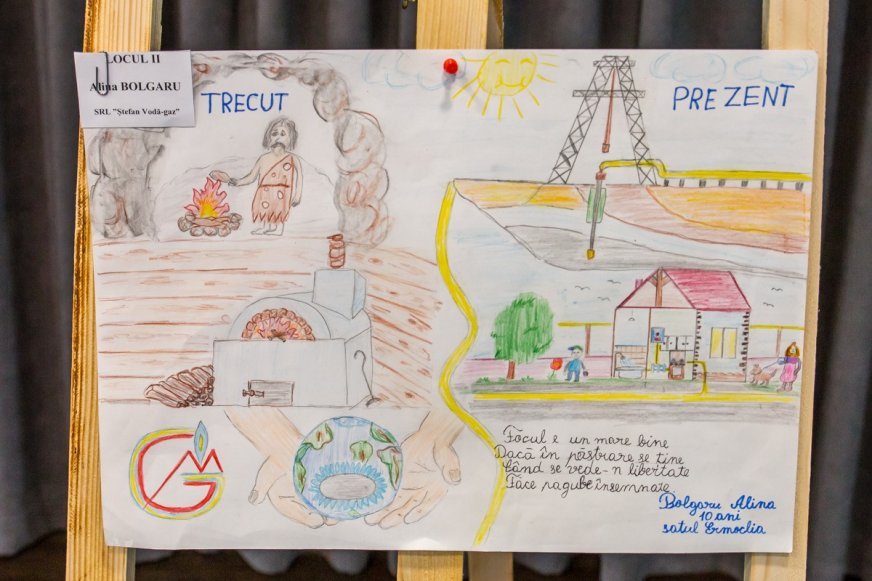 LOCUL II
Alina BOLGARU
SRL "Ștefan Vodă-gaz"
TRECUT
PREZENT
Focul e un mare bine
Dacă în păstrare se ține
Când se vede-n libertate
Face pagube însemnate
Bolgaru Alina
10 ani
satul Ermoclia